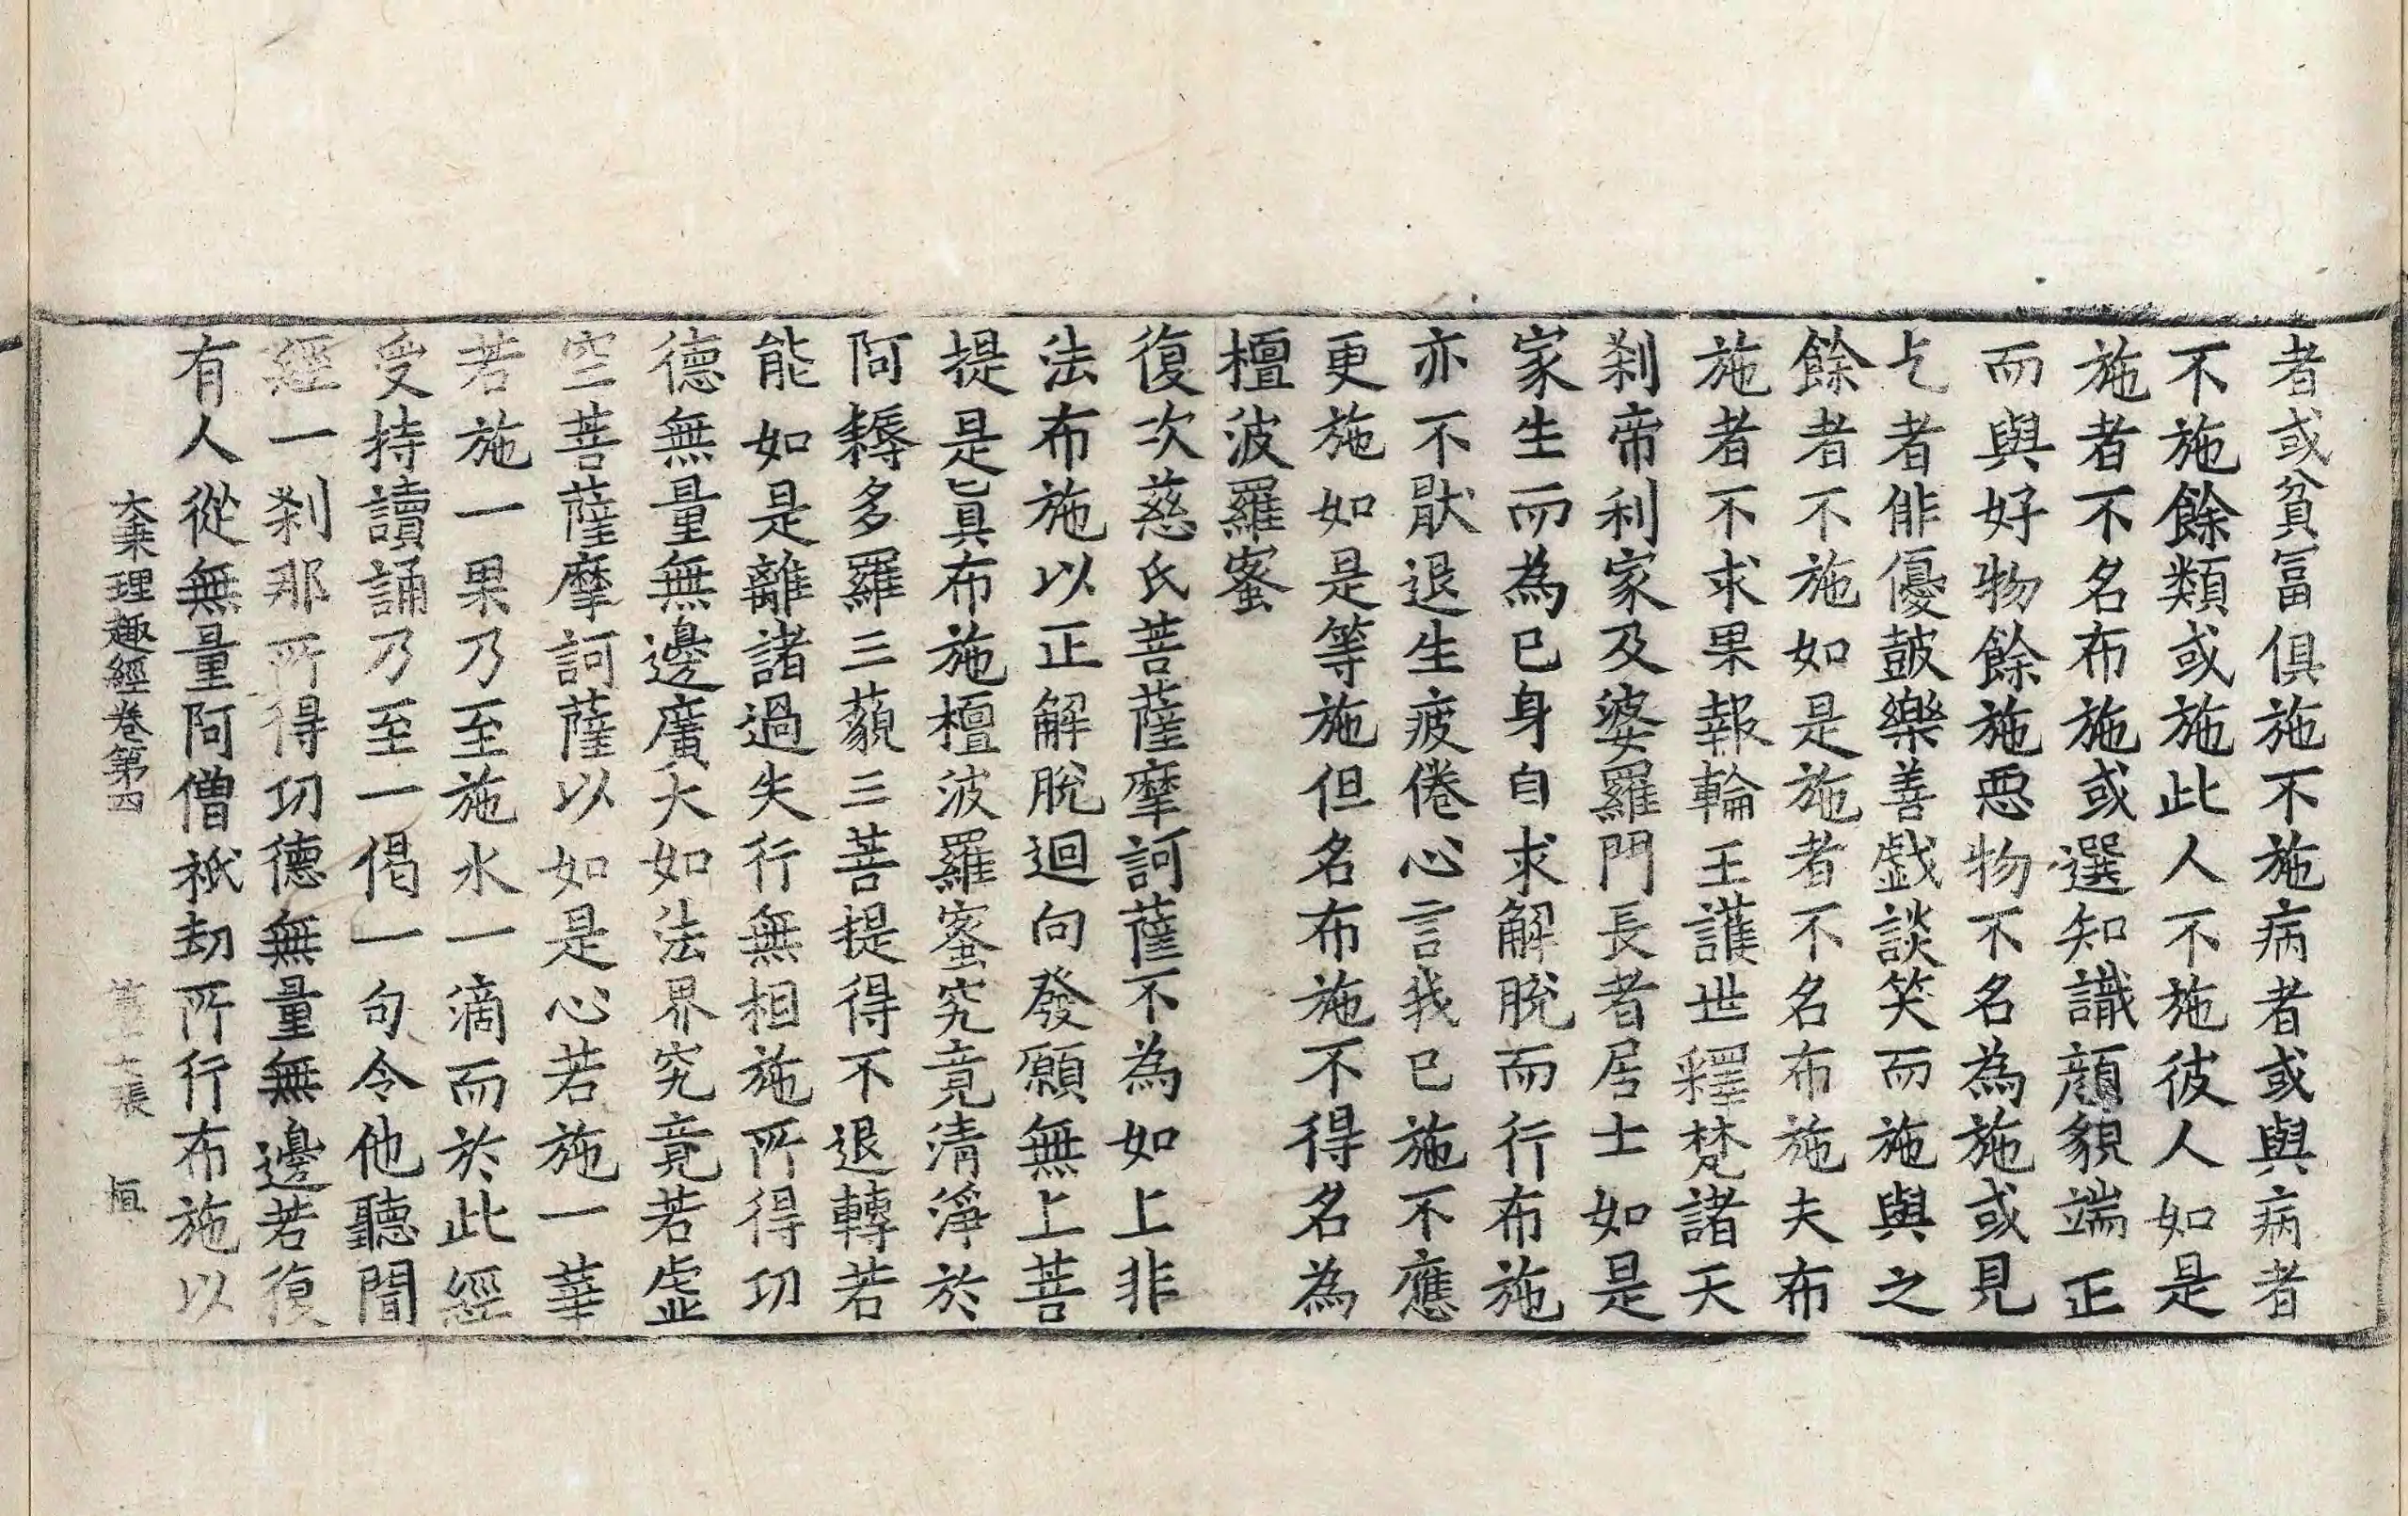 者或貧冨俱施不施病者或與病者
不施餘類或施此人不施彼人如是
施者不名布施或選知識顔貌端正
而與好物餘施惡物不名為施或見
乞者俳優鼓樂善戱談笑而施與之
餘者不施如是施者不名布施夫布
施者不求果報輪王護世釋梵諸天
刹帝利家及婆羅門長者居士如是
家生而為已身自求解脫而行布施
亦不猒退生疲倦心言我已施不應
更施如是等施但名布施不得名為
檀波羅蜜
復次慈氏菩薩摩訶薩不為如上非
法布施以正解脫迴向發願無上菩
提是眞布施檀波羅蜜究竟清淨於
阿耨多羅三藐三菩提得不退轉若
能如是離諸過失行無相施所得功
德無量無邊廣大如法界究竟若虛
空菩薩摩訶薩以如是心若施一華
若施一果乃至施水一滴而於此經
受持讀誦乃至一偈一句令他聽聞
經一刹那所得功德無量無邊若復
有人從無量阿僧祇劫所行布施以
大乗理趣經卷第四 第 張 垣